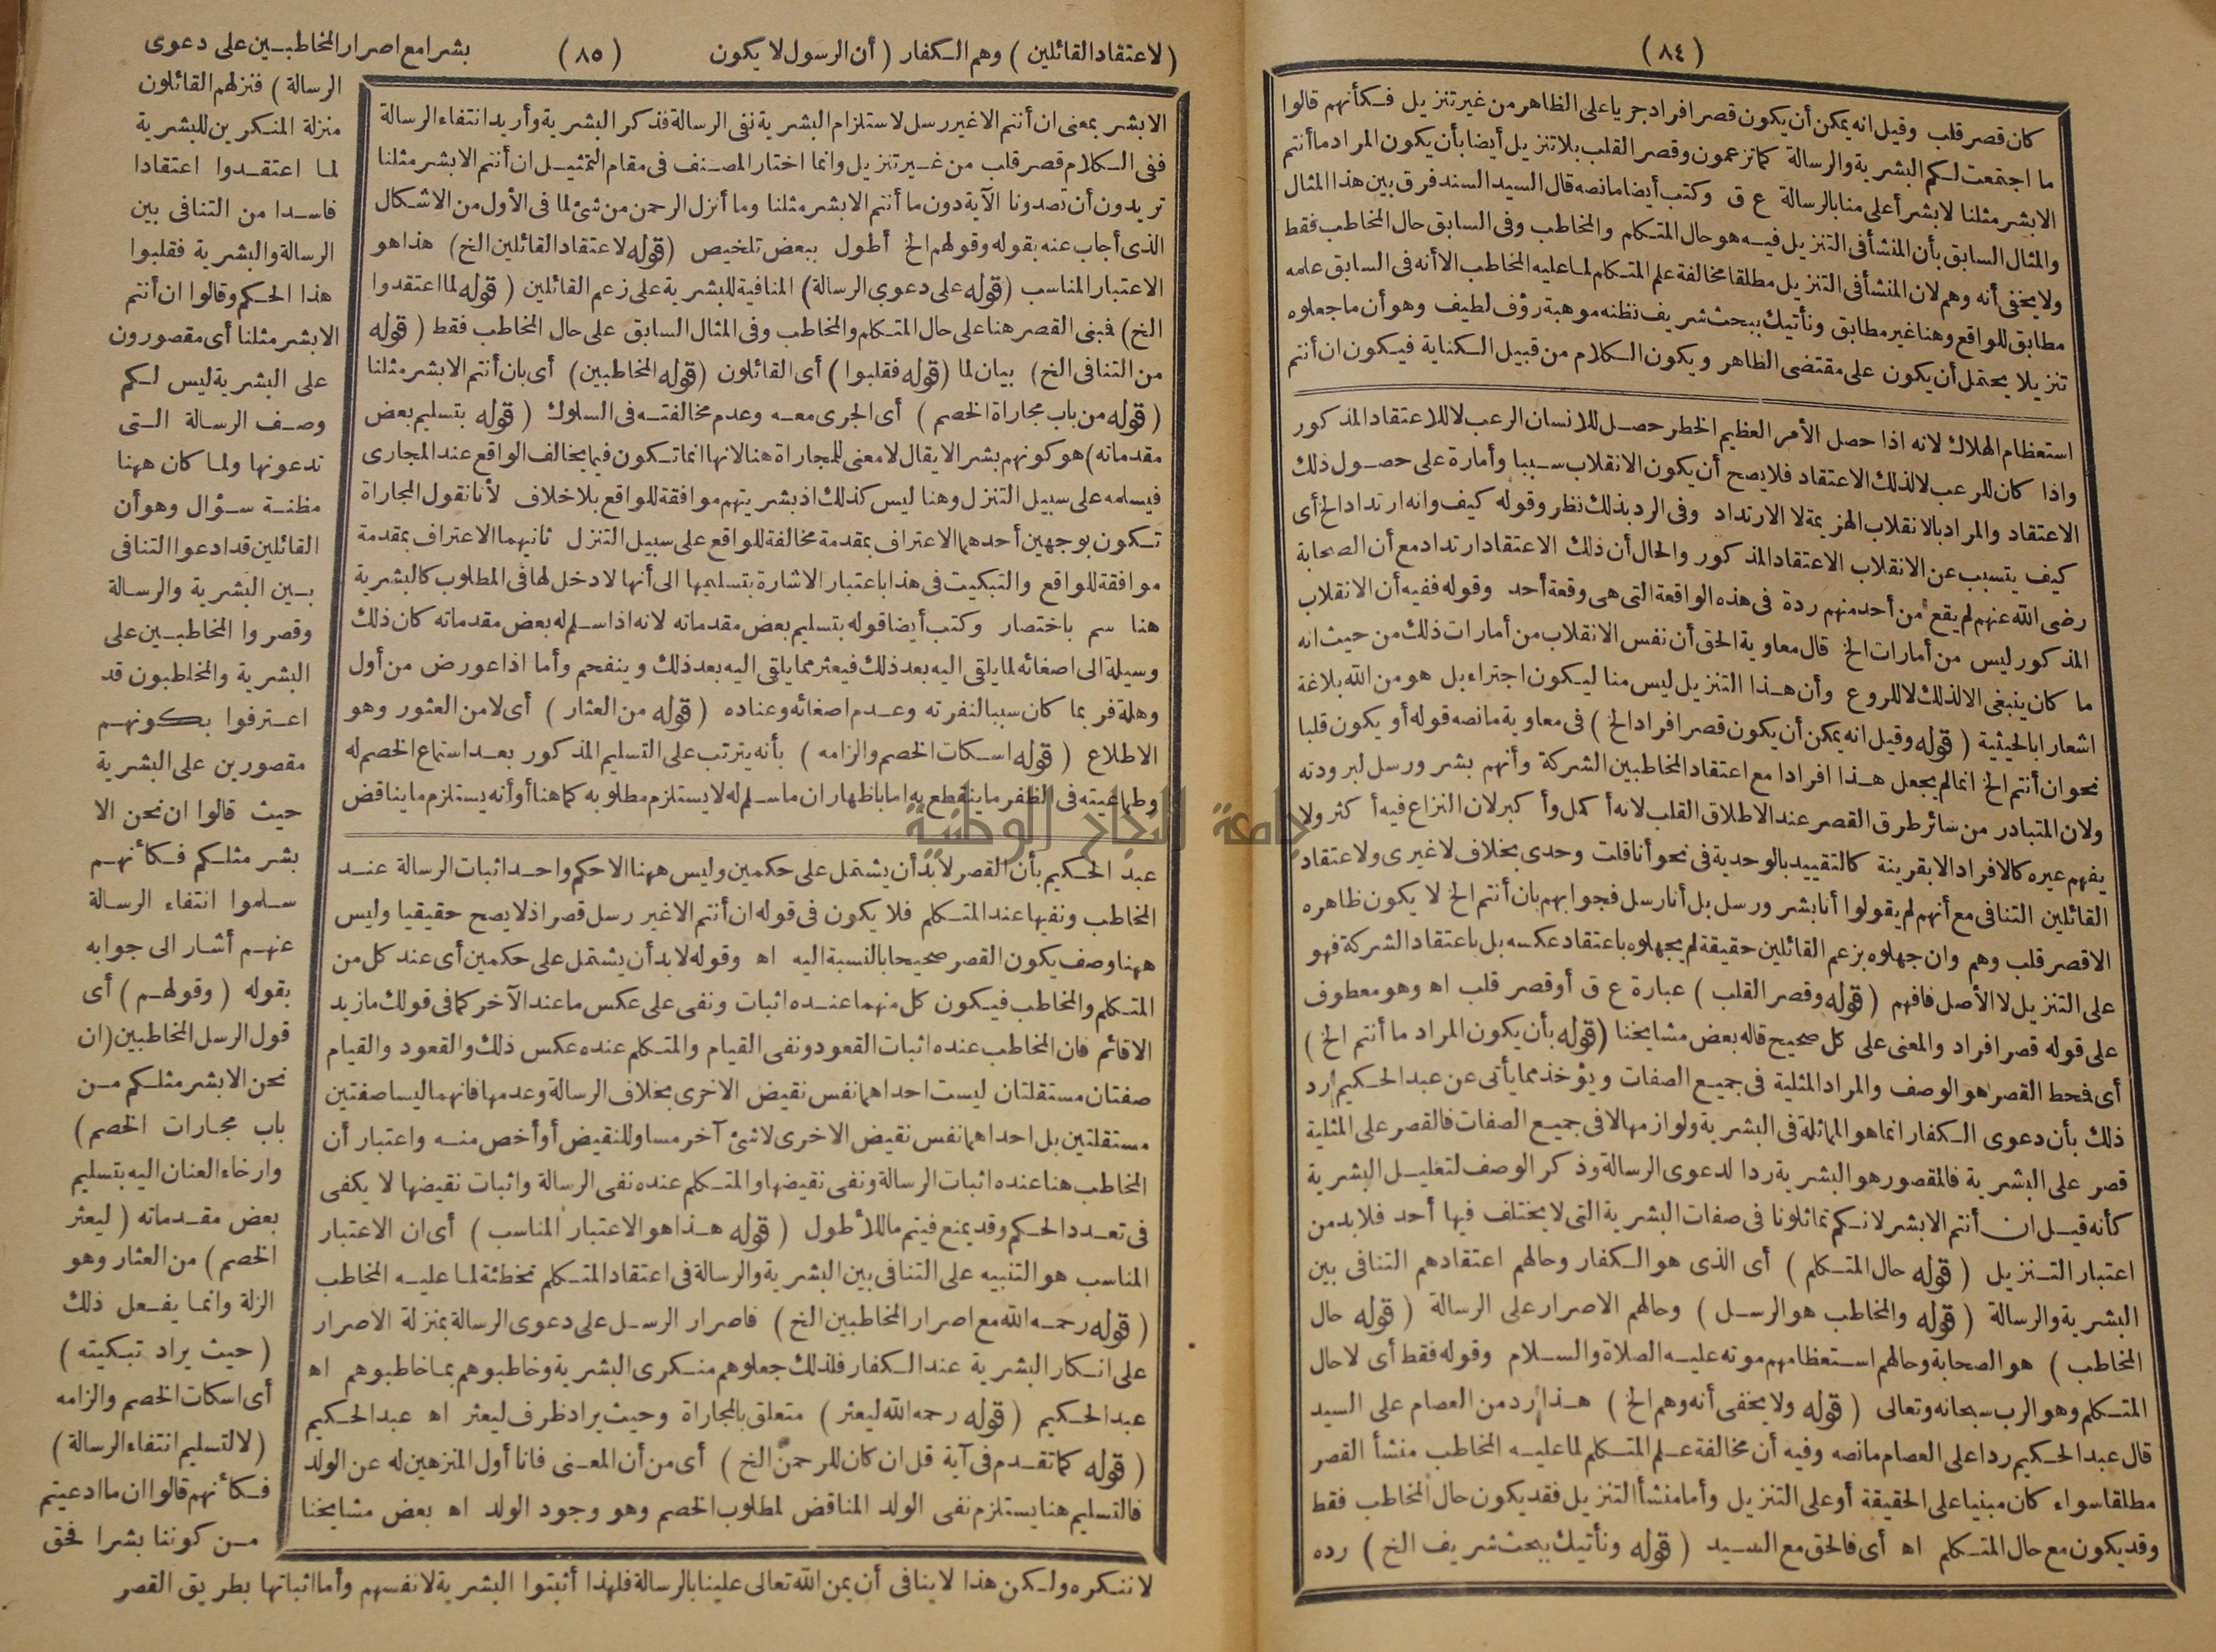 (٨٤)
كان قصر قلب وقيل انه يمكن أن يكون قصر افراد جريا على الظاهر من غير تنزيل فكأنهم قالوا
ما اجتمعت لكم البشرية والرسالة كما تزعمون وقصر القلب بلا تنزيل أيضا بأن يكون المراد ما أنتم
الا بشر مثلنا لا بشر أعلى منا بالرسالة ع ق وكتب أيضا ما نصه قال السيد السند فرق بين هذا المثال
والمثال السابق بأن المنشأ فى التنزيل فيه هو حال المتكلم والمخاطب وفى السابق حال المخاطب فقط
ولا يخفى أنه وهم لان المنشأ فى التنزيل مطلقا مخالفة علم المتكلم لما عليه المخاطب الا أنه فى السابق علمه
مطابق للواقع وهنا غير مطابق ونأتيك ببحث شريف نظنه موهبة رؤف لطيف وهو أن ما جعلوه
تنزيلا يحتمل أن يكون على مقتضى الظاهر ويكون الكلام من قبيل الكناية فيكون ان أنتم
استعظام الهلاك لانه اذا حصل الأمر العظيم الخطر حصل للانسان الرعب لا للاعتقاد المذكور
واذا كان للرعب لا لذلك الاعتقاد فلا يصح أن يكون الانقلاب سببا وأمارة على حصول ذلك
الاعتقاد والمراد بالانقلاب الهزيمة لا الارتداد وفى الرد بذلك نظر وقوله كيف وانه ارتداد الخ أى
كيف يتسبب عن الانقلاب الاعتقاد المذكور والحال أن ذلك الاعتقاد ارتداد مع أن الصحابة
رضى الله عنهم لم يقع من أحد منهم ردة فى هذه الواقعة التى هى وقعة أحد وقوله ففيه أن الانقلاب
المذكور ليس من أمارات الخ قال معاوية الحق أن نفس الانقلاب من أمارات ذلك من حيث انه
ما كان ينبغى الا لذلك لا للروع وأن هذا التنزيل ليس منا ليكون اجتراء بل هو من الله بلاغة
اشعارا بالحيثية (قوله وقيل انه يمكن أن يكون قصر افراد الخ) فى معاوية ما نصه قوله أو يكون قلبا
نحو ان أنتم الخ انما لم يجعل هذا افرادا مع اعتقاد المخاطبين الشركة وأنهم بشر ورسل لبرودته
ولان المتبادر من سائر طرق القصر عند الاطلاق القلب لانه أكمل وأكبر لان النزاع فيه أكثر ولا
يفهم غيره كالافراد الا بقرينة كالتقييد بالوحدية فى نحو أنا قلت وحدى بخلاف لا غيرى ولاعتقاد
القائلين التنافى مع أنهم لم يقولوا أنا بشر ورسل بل أنا رسل فجوابهم بان أنتم الخ لا يكون ظاهره
الا قصر قلب وهم وان جهلوه بزعم القائلين حقيقة لم يجهلوه باعتقاد عكسه بل باعتقاد الشركة فهو
على التنزيل لا الأصل فافهم (قوله وقصر القلب) عبارة ع ق أو قصر قلب اه وهو معطوف
على قوله قصر افراد والمعنى على كل صحيح قاله بعض مشايخنا (قوله بأن يكون المراد ما أنتم الخ)
أى فحط القصر هو الوصف والمراد المثلية فى جميع الصفات ويؤخذ مما يأتى عن عبد الحكيم رد
ذلك بأن دعوى الكفار انما هو المماثلة فى البشرية ولوازمها لا فى جميع الصفات فالقصر على المثلية
قصر على البشرية فالمقصور هو البشرية ردا لدعوى الرسالة وذكر الوصف لتعليل البشرية
كأنه قيل ان أنتم الا بشر لانكم تماثلونا فى صفات البشرية التى لا يختلف فيها أحد فلا بد من
اعتبار التنزيل (قوله حال المتكلم) أى الذى هو الكفار وحالهم اعتقادهم التنافى بين
البشرية والرسالة (قوله والمخاطب هو الرسل) وحالهم الاصرار على الرسالة (قوله حال
المخاطب) هو الصحابة وحالهم استعظامهم موته عليه الصلاة والسلام وقوله فقط أى لا حال
المتكلم وهو الرب سبحانه وتعالى (قوله ولا يخفى أنه وهم الخ) هذا رد من العصام على السيد
قال عبد الحكيم ردا على العصام ما نصه وفيه أن مخالفة علم المتكلم لما عليه المخاطب منشأ القصر
مطلقا سواء كان مبنيا على الحقيقة أو على التنزيل وأما منشأ التنزيل فقد يكون حال المخاطب فقط
وقد يكون مع حال المتكلم اه أى فالحق مع السيد (قوله ونأتيك ببحث شريف الخ) رده
(لاعتقاد القائلين) وهم الكفار (أن الرسول لا يكون (٨٥) بشرا مع اصرار المخاطبين على دعوى
الرسالة) فنزلهم القائلون
منزلة المنكرين للبشرية
لما اعتقدوا اعتقادا
فاسدا من التنافى بين
الرسالة والبشرية فقلبوا
هذا الحكم وقالوا ان أنتم
الا بشر مثلنا أى مقصورون
على البشرية ليس لكم
وصف الرسالة التى
تدعونها ولما كان ههنا
مظنة سؤال وهو أن
القائلين قد ادعوا التنافى
بين البشرية والرسالة
وقصروا المخاطبين على
البشرية والمخاطبون قد
اعترفوا بكونهم
مقصورين على البشرية
حيث قالوا ان نحن الا
بشر مثلكم فكأنهم
سلموا انتفاء الرسالة
عنهم أشار الى جوابه
بقوله (وقولهم) أى
قول الرسل المخاطبين (ان
نحن الا بشر مثلكم من
باب مجارات الخصم)
وارخاء العنان اليه بتسليم
بعض مقدماته (ليعثر
الخصم) من العثار وهو
الزلة وانما يفعل ذلك
(حيث يراد تبكيته)
أى اسكات الخصم والزامه
(لا لتسليم انتفاء الرسالة)
فكأنهم قالوا ان ما ادعيتم
من كوننا بشرا فحق
لا ننكره ولكن هذا لا ينافى أن يمن الله تعالى علينا بالرسالة فلهذا أثبتوا البشرية لانفسهم وأما اثباتها بطريق القصر
الا بشر بمعنى ان أنتم الا غير رسل لاستلزام البشرية نفى الرسالة فذكر البشرية وأريد انتفاء الرسالة
ففى الكلام قصر قلب من غير تنزيل وانما اختار المصنف فى مقام التمثيل ان أنتم الا بشر مثلنا
تريدون أن تصدونا الآية دون ما أنتم الا بشر مثلنا وما أنزل الرحمن من شئ لما فى الأول من الاشكال
الذى أجاب عنه بقوله وقولهم الخ أطول ببعض تلخيص (قوله لاعتقاد القائلين الخ) هذا هو
الاعتبار المناسب (قوله على دعوى الرسالة) المنافية للبشرية على زعم القائلين (قوله لما اعتقدوا
الخ) فبنى القصر هنا على حال المتكلم والمخاطب وفى المثال السابق على حال المخاطب فقط (قوله
من التنافى الخ) بيان لما (قوله فقلبوا) أى القائلون (قوله المخاطبين) أى بان أنتم الا بشر مثلنا
(قوله من باب مجاراة الخصم) أى الجرى معه وعدم مخالفته فى السلوك (قوله بتسليم بعض
مقدماته) هو كونهم بشرا لا يقال لا معنى للمجاراة هنا لانها انما تكون فيما يخالف الواقع عند المجارى
فيسلمه على سبيل التنزل وهنا ليس كذلك اذ بشريتهم موافقة للواقع بلا خلاف لأنا نقول المجاراة
تكون بوجهين أحدهما الاعتراف بمقدمة مخالفة للواقع على سبيل التنزل ثانيهما الاعتراف بمقدمة
موافقة للواقع والتبكيت فى هذا باعتبار الاشارة بتسليمها الى أنها لا دخل لها فى المطلوب كالبشرية
هنا سم باختصار وكتب أيضا قوله بتسليم بعض مقدماته لانه اذا سلم له بعض مقدماته كان ذلك
وسيلة الى اصغائه لما يلقى اليه بعد ذلك فيعثر مما يلقى اليه بعد ذلك وينفحم وأما اذا عورض من أول
وهلة فربما كان سببا لنفرته وعدم اصغائه وعناده (قوله من العثار) أى لا من العثور وهو
الاطلاع (قوله اسكات الخصم والزامه) بأنه يترتب على التسليم المذكور بعد استماع الخصم له
وطماعيته فى الظفر ما ينقطع به اما باظهار ان ما سلم له لا يستلزم مطلوبه كما هنا أو أنه يستلزم ما يناقض
عبد الحكيم بأن القصر لا بد أن يشتمل على حكمين وليس ههنا الا حكم واحد اثبات الرسالة عند
المخاطب ونفيها عند المتكلم فلا يكون فى قوله ان أنتم الا غير رسل قصر اذ لا يصح حقيقيا وليس
ههنا وصف يكون القصر صحيحا بالنسبة اليه اه وقوله لا بد أن يشتمل على حكمين أى عند كل من
المتكلم والمخاطب فيكون كل منهما عنده اثبات ونفى على عكس ما عند الآخر كما فى قولك ما زيد
الا قائم فان المخاطب عنده اثبات القعود ونفى القيام والمتكلم عنده عكس ذلك والقعود والقيام
صفتان مستقلتان ليست احداهما نفس نقيض الاخرى بخلاف الرسالة وعدمها فانهما ليسا صفتين
مستقلتين بل احداهما نفس نقيض الاخرى لا شئ آخر مساو للنقيض أو أخص منه واعتبار أن
المخاطب هنا عنده اثبات الرسالة ونفى نقيضها والمتكلم عنده نفى الرسالة واثبات نقيضها لا يكفى
فى تعدد الحكم وقد يمنع فيتم ما للأطول (قوله هذا هو الاعتبار المناسب) أى ان الاعتبار
المناسب هو التنبيه على التنافى بين البشرية والرسالة فى اعتقاد المتكلم تخطئة لما عليه المخاطب
(قوله رحمه الله مع اصرار المخاطبين الخ) فاصرار الرسل على دعوى الرسالة بمنزلة الاصرار
على انكار البشرية عند الكفار فلذلك جعلوهم منكرى البشرية وخاطبوهم بما خاطبوهم اه
عبد الحكيم (قوله رحمه الله ليعثر) متعلق بالمجاراة وحيث يراد ظرف ليعثر اه عبد الحكيم
(قوله كما تقدم فى آية قل ان كان للرحمن الخ) أى من أن المعنى فانا أول المنزهين له عن الولد
فالتسليم هنا يستلزم نفى الولد المناقض لمطلوب الخصم وهو وجود الولد اه بعض مشايخنا
جامعة النجاح الوطنية